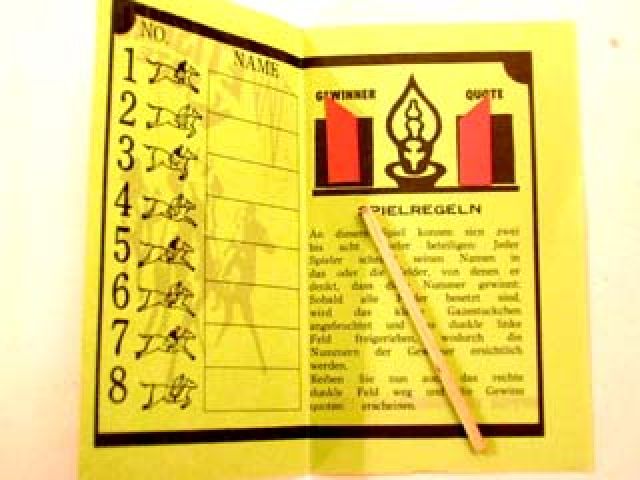 NO.
NAME
1
2
3
4
5
6
7
8
GEWINNER QUOTE
SPIELREGELN
An diesem Spiel konnen sich zwei
bis acht beteiligen: Jeder
Spieler seinen Namen in
das oder die Felder, von denen er
denkt, dass die Nummer gewinnt.
Sobald alle besetzt sind,
wird das Gazestuckchen
angefeuchtet und dunkle linke
Feld freigerieben, wodurch die
Nummern der Gewinner ersichtlich
werden.
Reiben Sie nun auch das rechte
dunkle Feld weg und die Gewinn
quoten erscheinen.